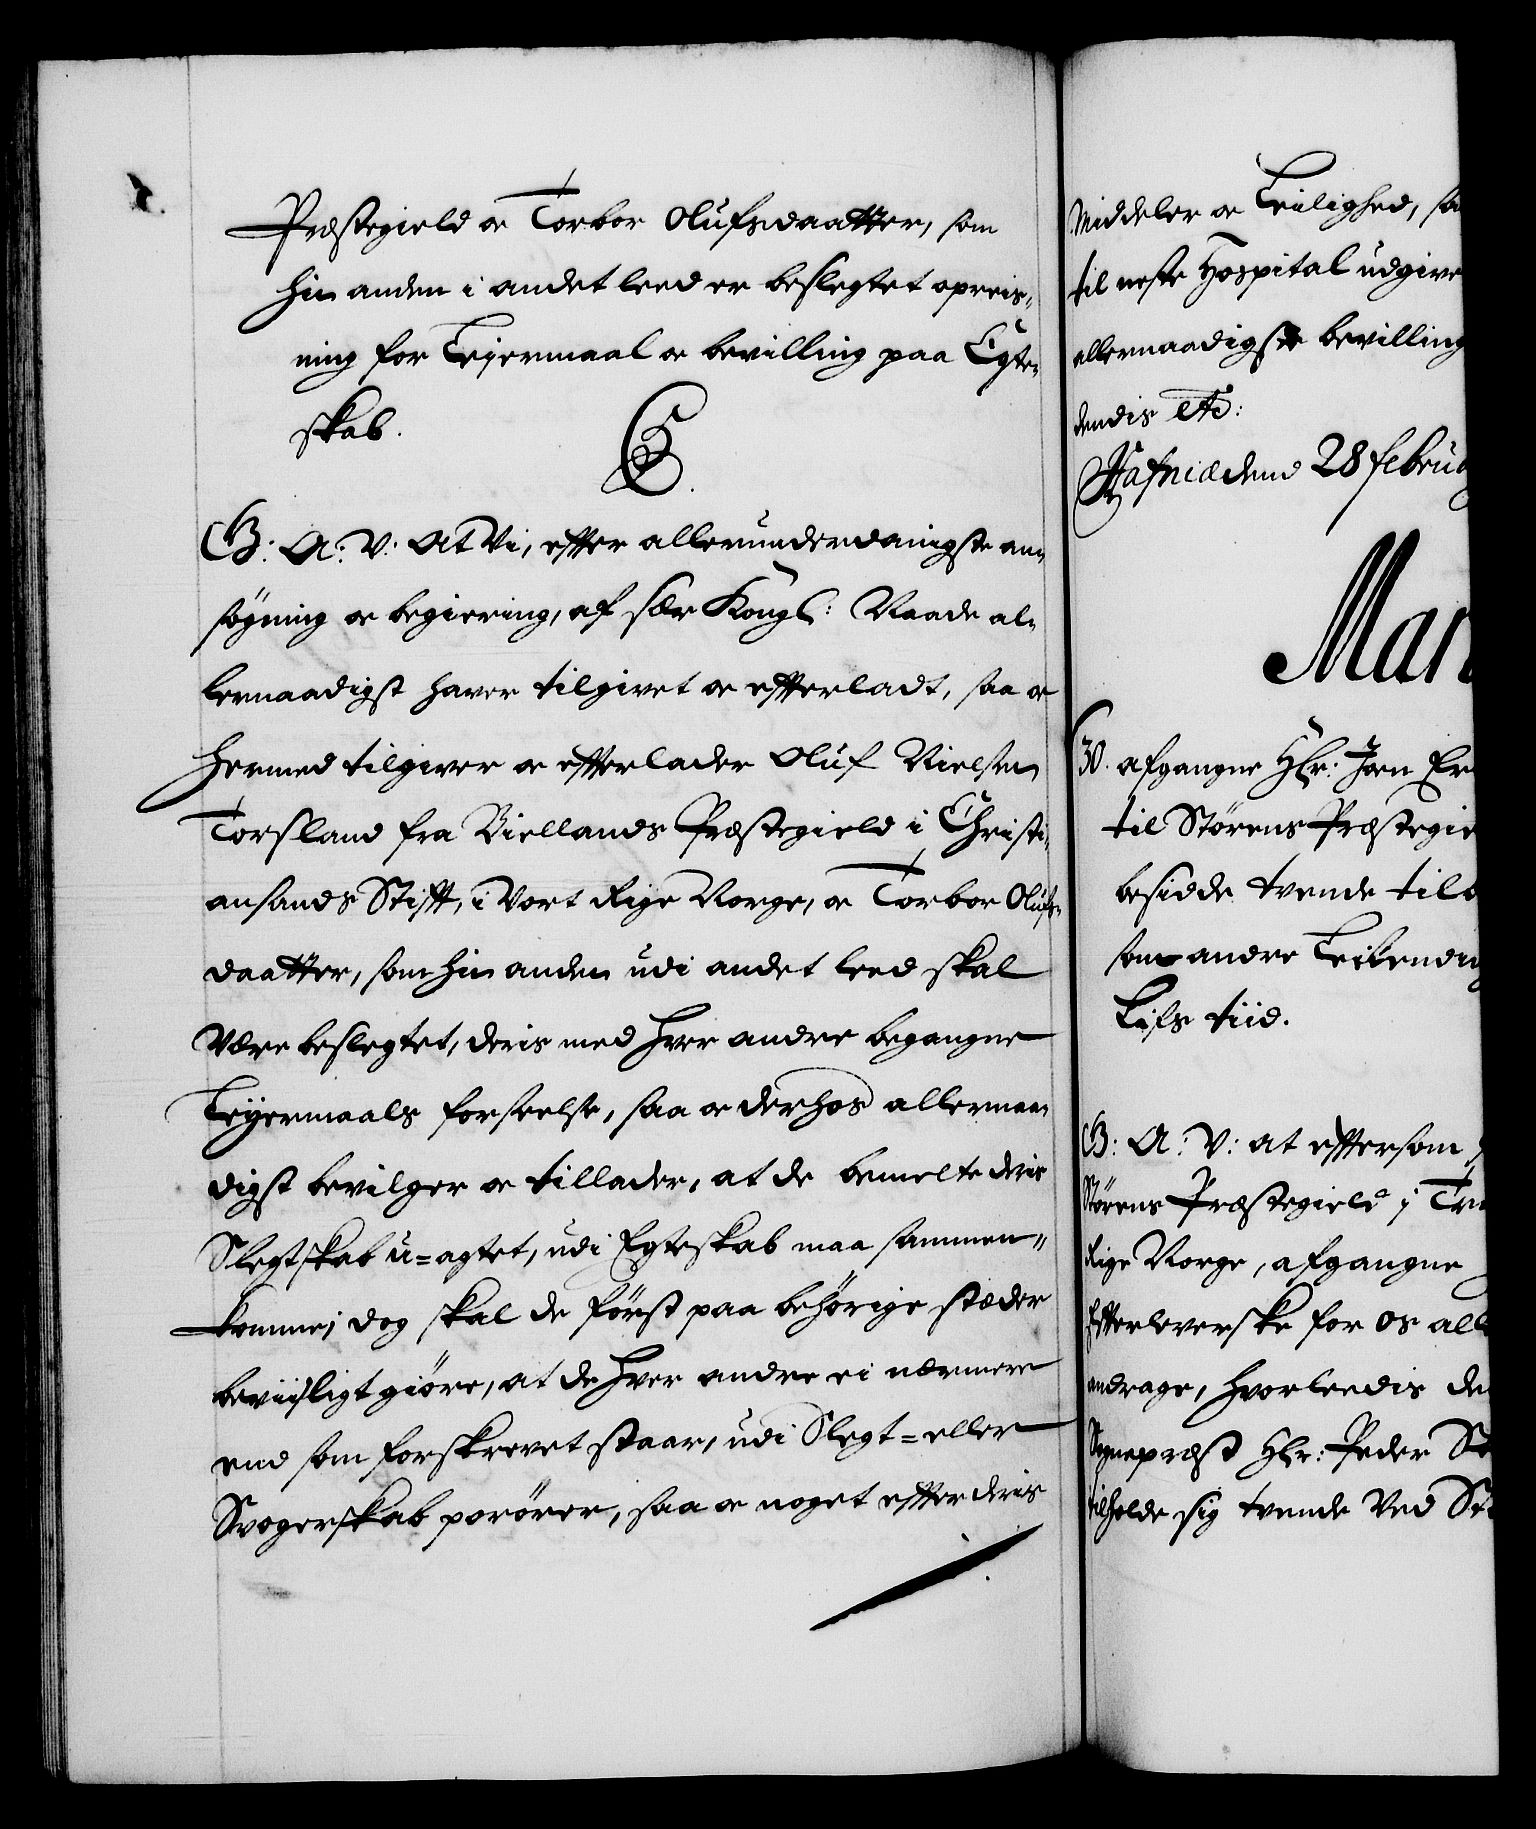 Præstegield oc Torbor Olufsdaatter, som
hin anden i andet leed er beslegtet opreis-
ning for Leyermaal oc bevilling paa Egte-
skab.
G: A: V: At Vi, effter allerunderdanigste an-
søgning oc begiering, af sær Kongl: Naade al-
lernaadigst haver tilgivet oc effterladt, saa oc
hermed tilgiver oc effterlader Oluf Nielsen
Torsland fra Biellands Præstegield i Christi-
ansands Stifft, i Vort Rige Norge, oc Torbor Olufs-
daatter, som hin anden udi andet leed skal
Være beslegtet, deris med hver andre begangne
Leyermaals forseelse, saa oc derhos allernaa-
digst bevilger oc tillader, at de bemelte deris
Slegtskab u=agtet, udi Egteskab maa sammen-
komme; dog skal de først paa behørige stæder
beviisligt giøre, at de hver andre ei nærmere
end som forskrevet staar, udi Slegt= eller
Svogerskab porører, saa oc noget effter deris
Middeler oc Leilighed, sa
til neste Hospital udgive
allernaadigste bevilling
dendis etc:
Hafniæ dend 28 februa
Mar
30. afgangne Hr: Joen Er
til Størens Præstegie
besidde tvende til
som andre Leilendi
Lifs tiid.
G: A: V: at efftersom
Størens Præstegield i Tr
Rige Norge, afgangne
Effterleverske for os all
andrage, hvorleedis de
Sognepræst Hr: Peder St
tilholde sig tvende Ved St